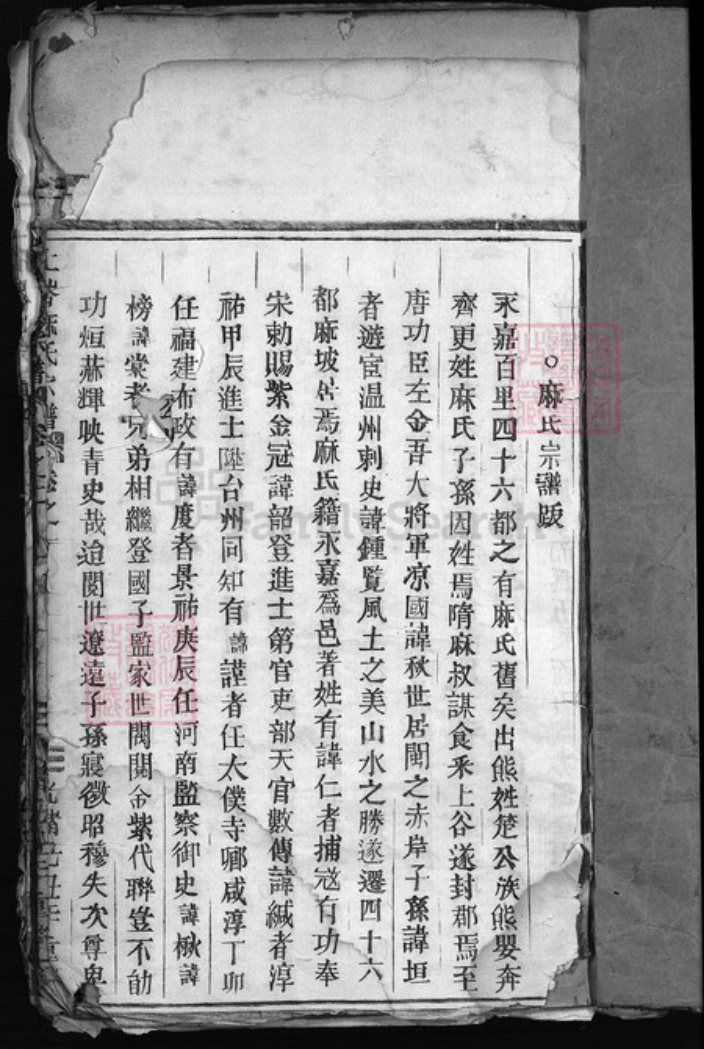 ○麻氏宗譜跋
永嘉百里四十六都之有麻氏舊矣出熊姓楚公族熊嬰奔
齊更姓麻氏子孫因姓焉隋麻叔謀食釆上谷遂封郡焉至
唐功臣左金吾大將軍凉國諱秋世居閩之赤岸子孫諱垣
者遊宦温州刺史諱鍾覧風土之美山水之勝遂遷四十六
都麻坡居焉麻氏籍永嘉爲邑著姓有諱仁者捕寇有功奉
宋勅賜紫金冠諱韶登進士第官吏部天官數傳諱緘者淳
祐甲辰進士陞台州同知有諱謹者任太僕寺卿咸淳丁卯
任福建布政有諱度者景祐庚辰任河南監察御史諱楸諱
榜諱棠者兄弟相繼登國子監家世閥閱金紫代聯豈不勛
功烜赫輝映青史哉迨閱世遼遠子孫寖微昭穆失次尊卑
麻氏宗譜
FamilySearch